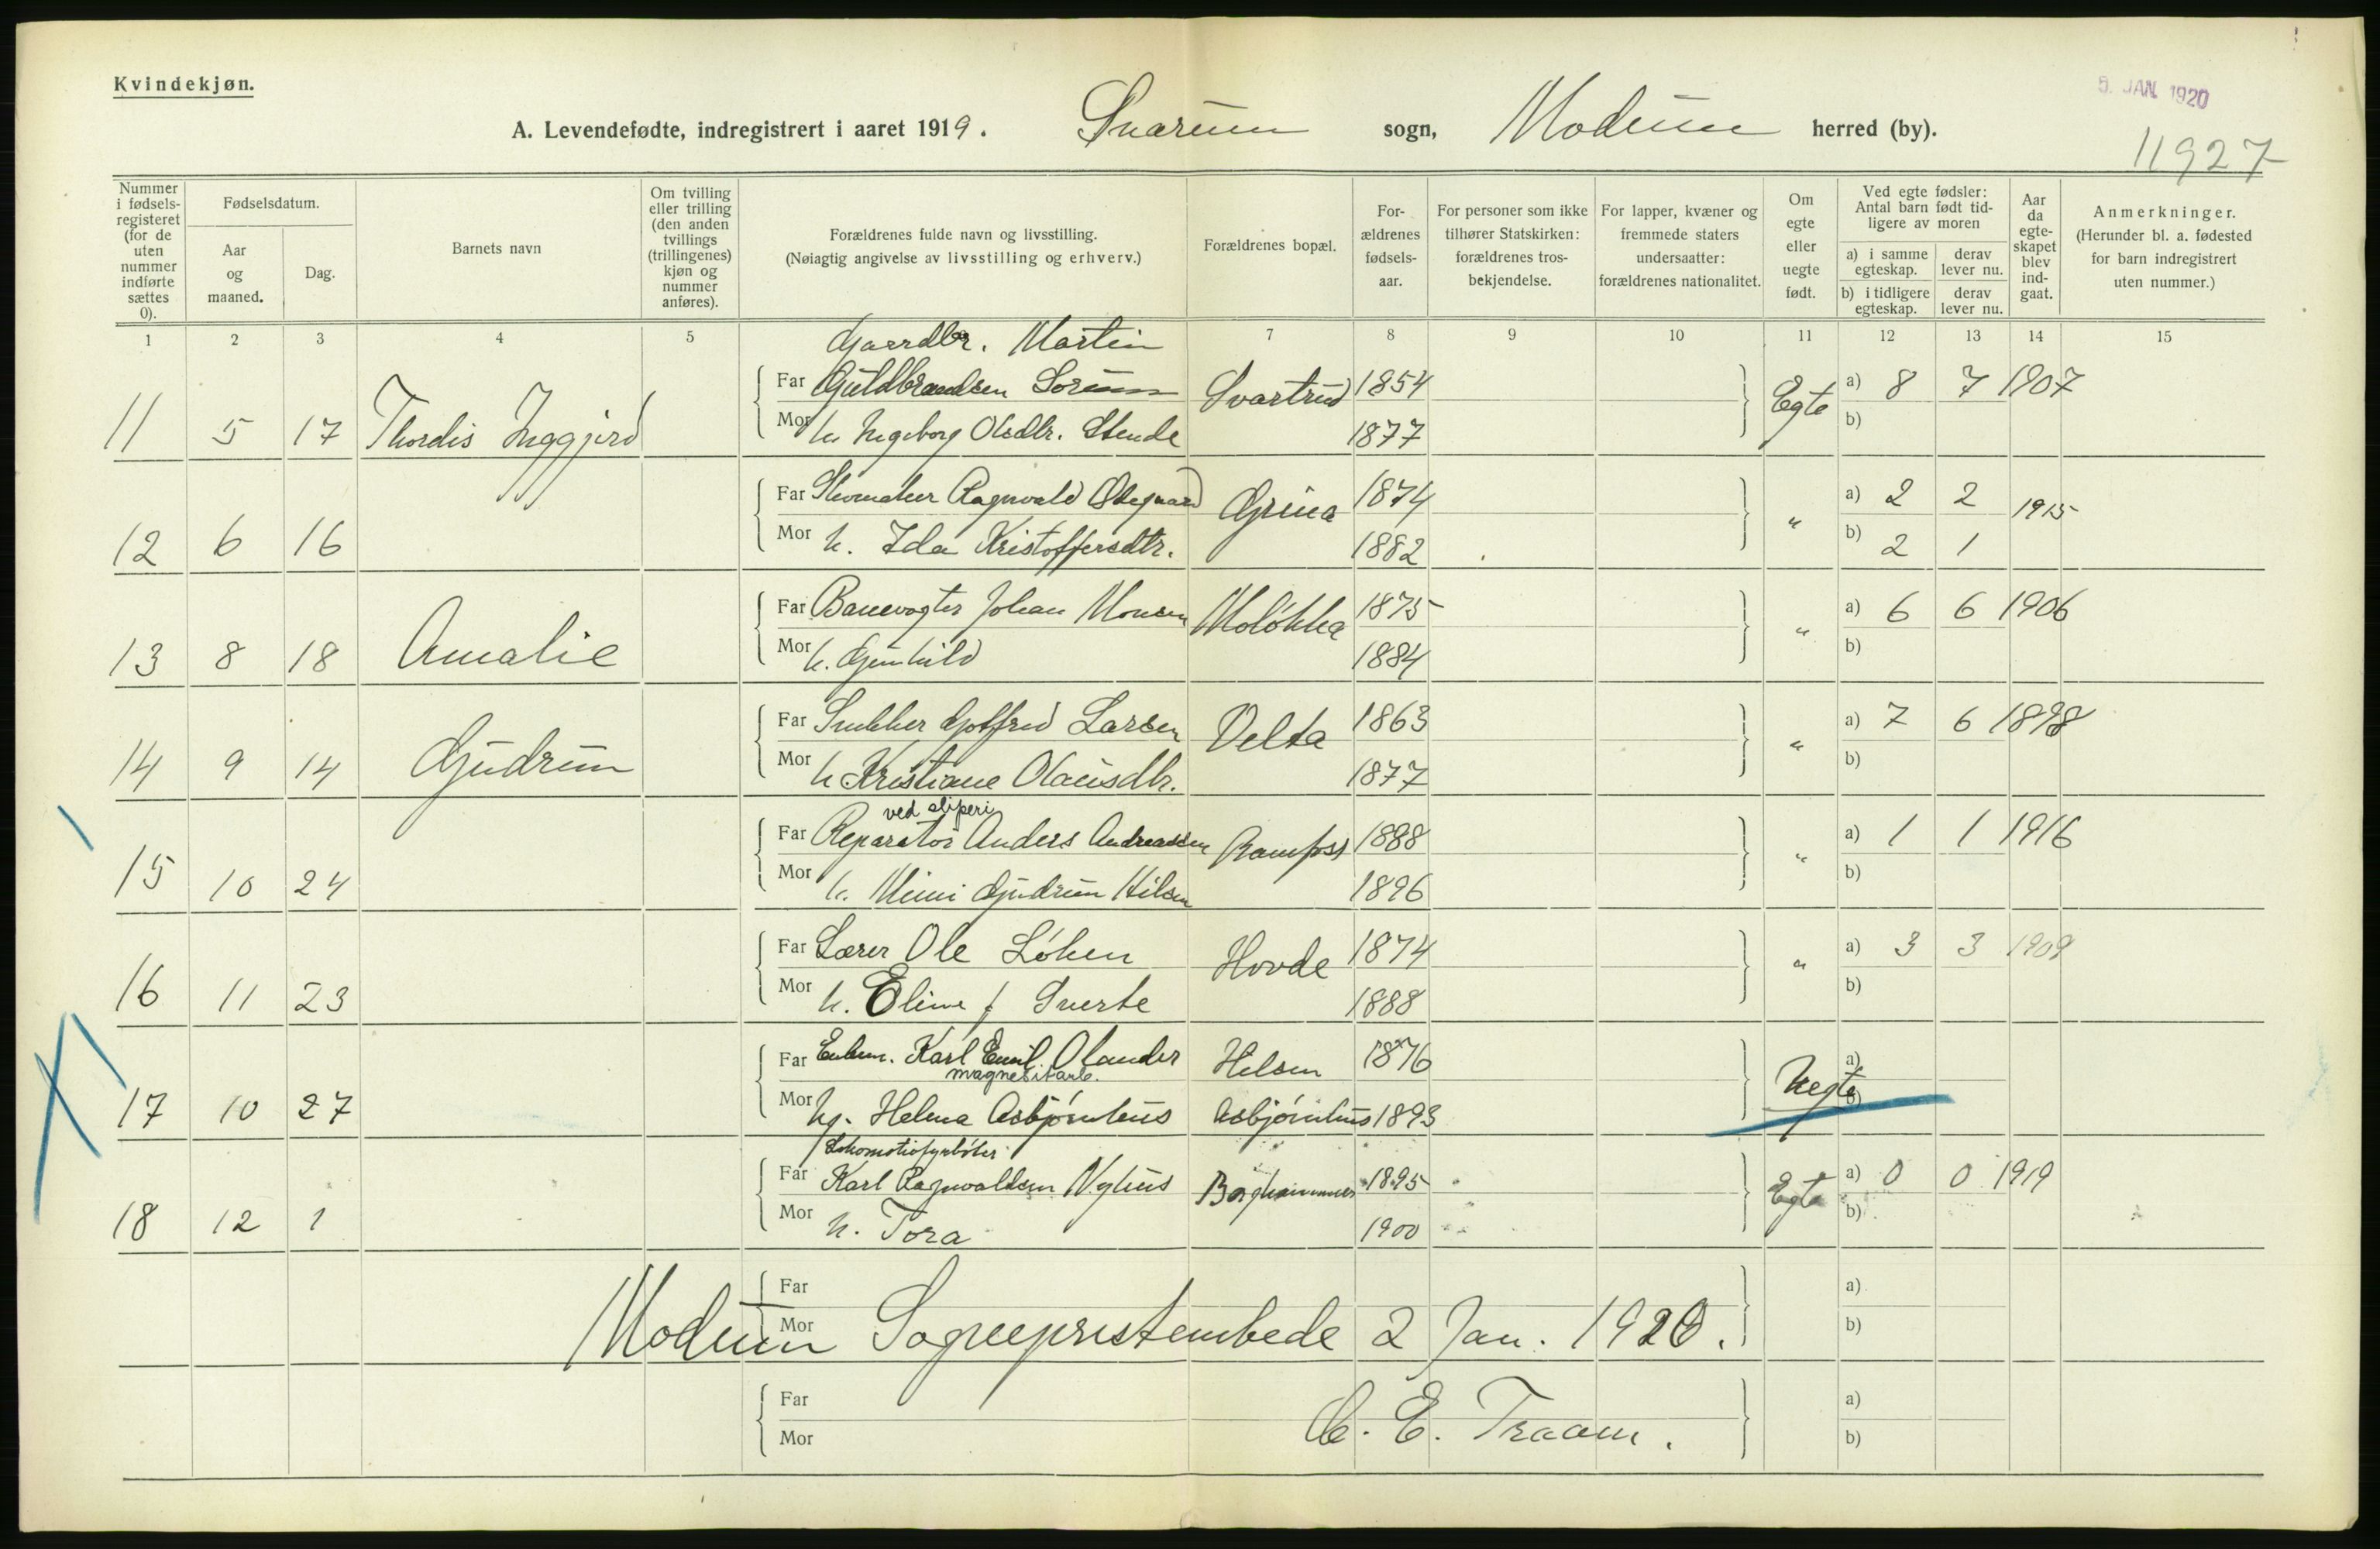 Kvindekjøn.
5. JAN. 1920
A. Levendefødte, indregistrert i aaret 1919. Snarum sogn, Modum herred (by).
11927
Nummer i fødsels-registeret (for de uten nummer indførte sættes 0).
Fødselsdatum.
Aar og maaned.
Dag.
Barnets navn
Om tvilling eller trilling (den anden tvillings (trillingenes) kjøn og nummer anføres).
Forældrenes fulde navn og livsstilling.
(Nøiagtig angivelse av livsstilling og erhverv.)
Forældrenes bopæl.
For-ældrenes fødsels-aar.
For personer som ikke tilhører Statskirken: forældrenes tros-bekjendelse.
For lapper, kvæner og fremmede staters undersaatter: forældrenes nationalitet.
Om egte eller uegte født.
Ved egte fødsler: Antal barn født tid-ligere av moren
a) i samme egteskap.
derav lever nu.
b) i tidligere egteskap.
derav lever nu.
Aar da egte-skapet blev ind-gaat.
Anmerkninger.
(Herunder bl. a. fødested for barn indregistrert uten nummer.)
1 2 3 4 5 7 8 9 10 11 12 13 14 15
Gaardbr. Martin
Far Guldbrandsen Sorum Svartrud 1854 Egte a) 8 7 1907
11 5 17 Thordis Inggjerd Mor h. Ingeborg Olsdtr. Stende 1877 b)
Far Skomaker Ragnvald Ødegaard Grina 1874 " a) 2 2 1915
12 6 16 Mor h. Ida Kristoffersdtr. 1882 b) 2 1
Far Banevogter Johan Monsen Moløkka 1875 " a) 6 6 1906
13 8 18 Amalie Mor h. Gunhild 1884 b)
Far Snekker Gotfred Larsen Velta 1863 " a) 7 6 1898
14 9 14 Gudrun Mor h Kristiane Olausdtr. 1877 b)
ved sliperi
Far Reparatør Anders Andreassen Ramfoss 1888 " a) 1 1 1916
15 10 24 Mor h. Mimi Gudrun Hilsen 1896 b)
Far Lærer Ole Løken Hovde 1874 " a) 3 3 1909
16 11 23 Mor h. Eline f Snerte 1888 b)
Far Enkem. Karl Emil Olander Helsen 1876 Uegte a)
magnesitarb.
17 10 27 Mor Ug. Helena Asbjørnhus Asbjørnhus 1893 b)
Lokomotivfyrbøter
Far Karl Ragnvaldsen Nyhus Borghammer 1895 Egte a) 0 0 1919
18 12 1 Mor h. Tora 1900 b)
Far a)
Mor b)
Modum Sogneprestembede 2 Jan. 1920.
Far a)
C. E. Traaen.
Mor b)